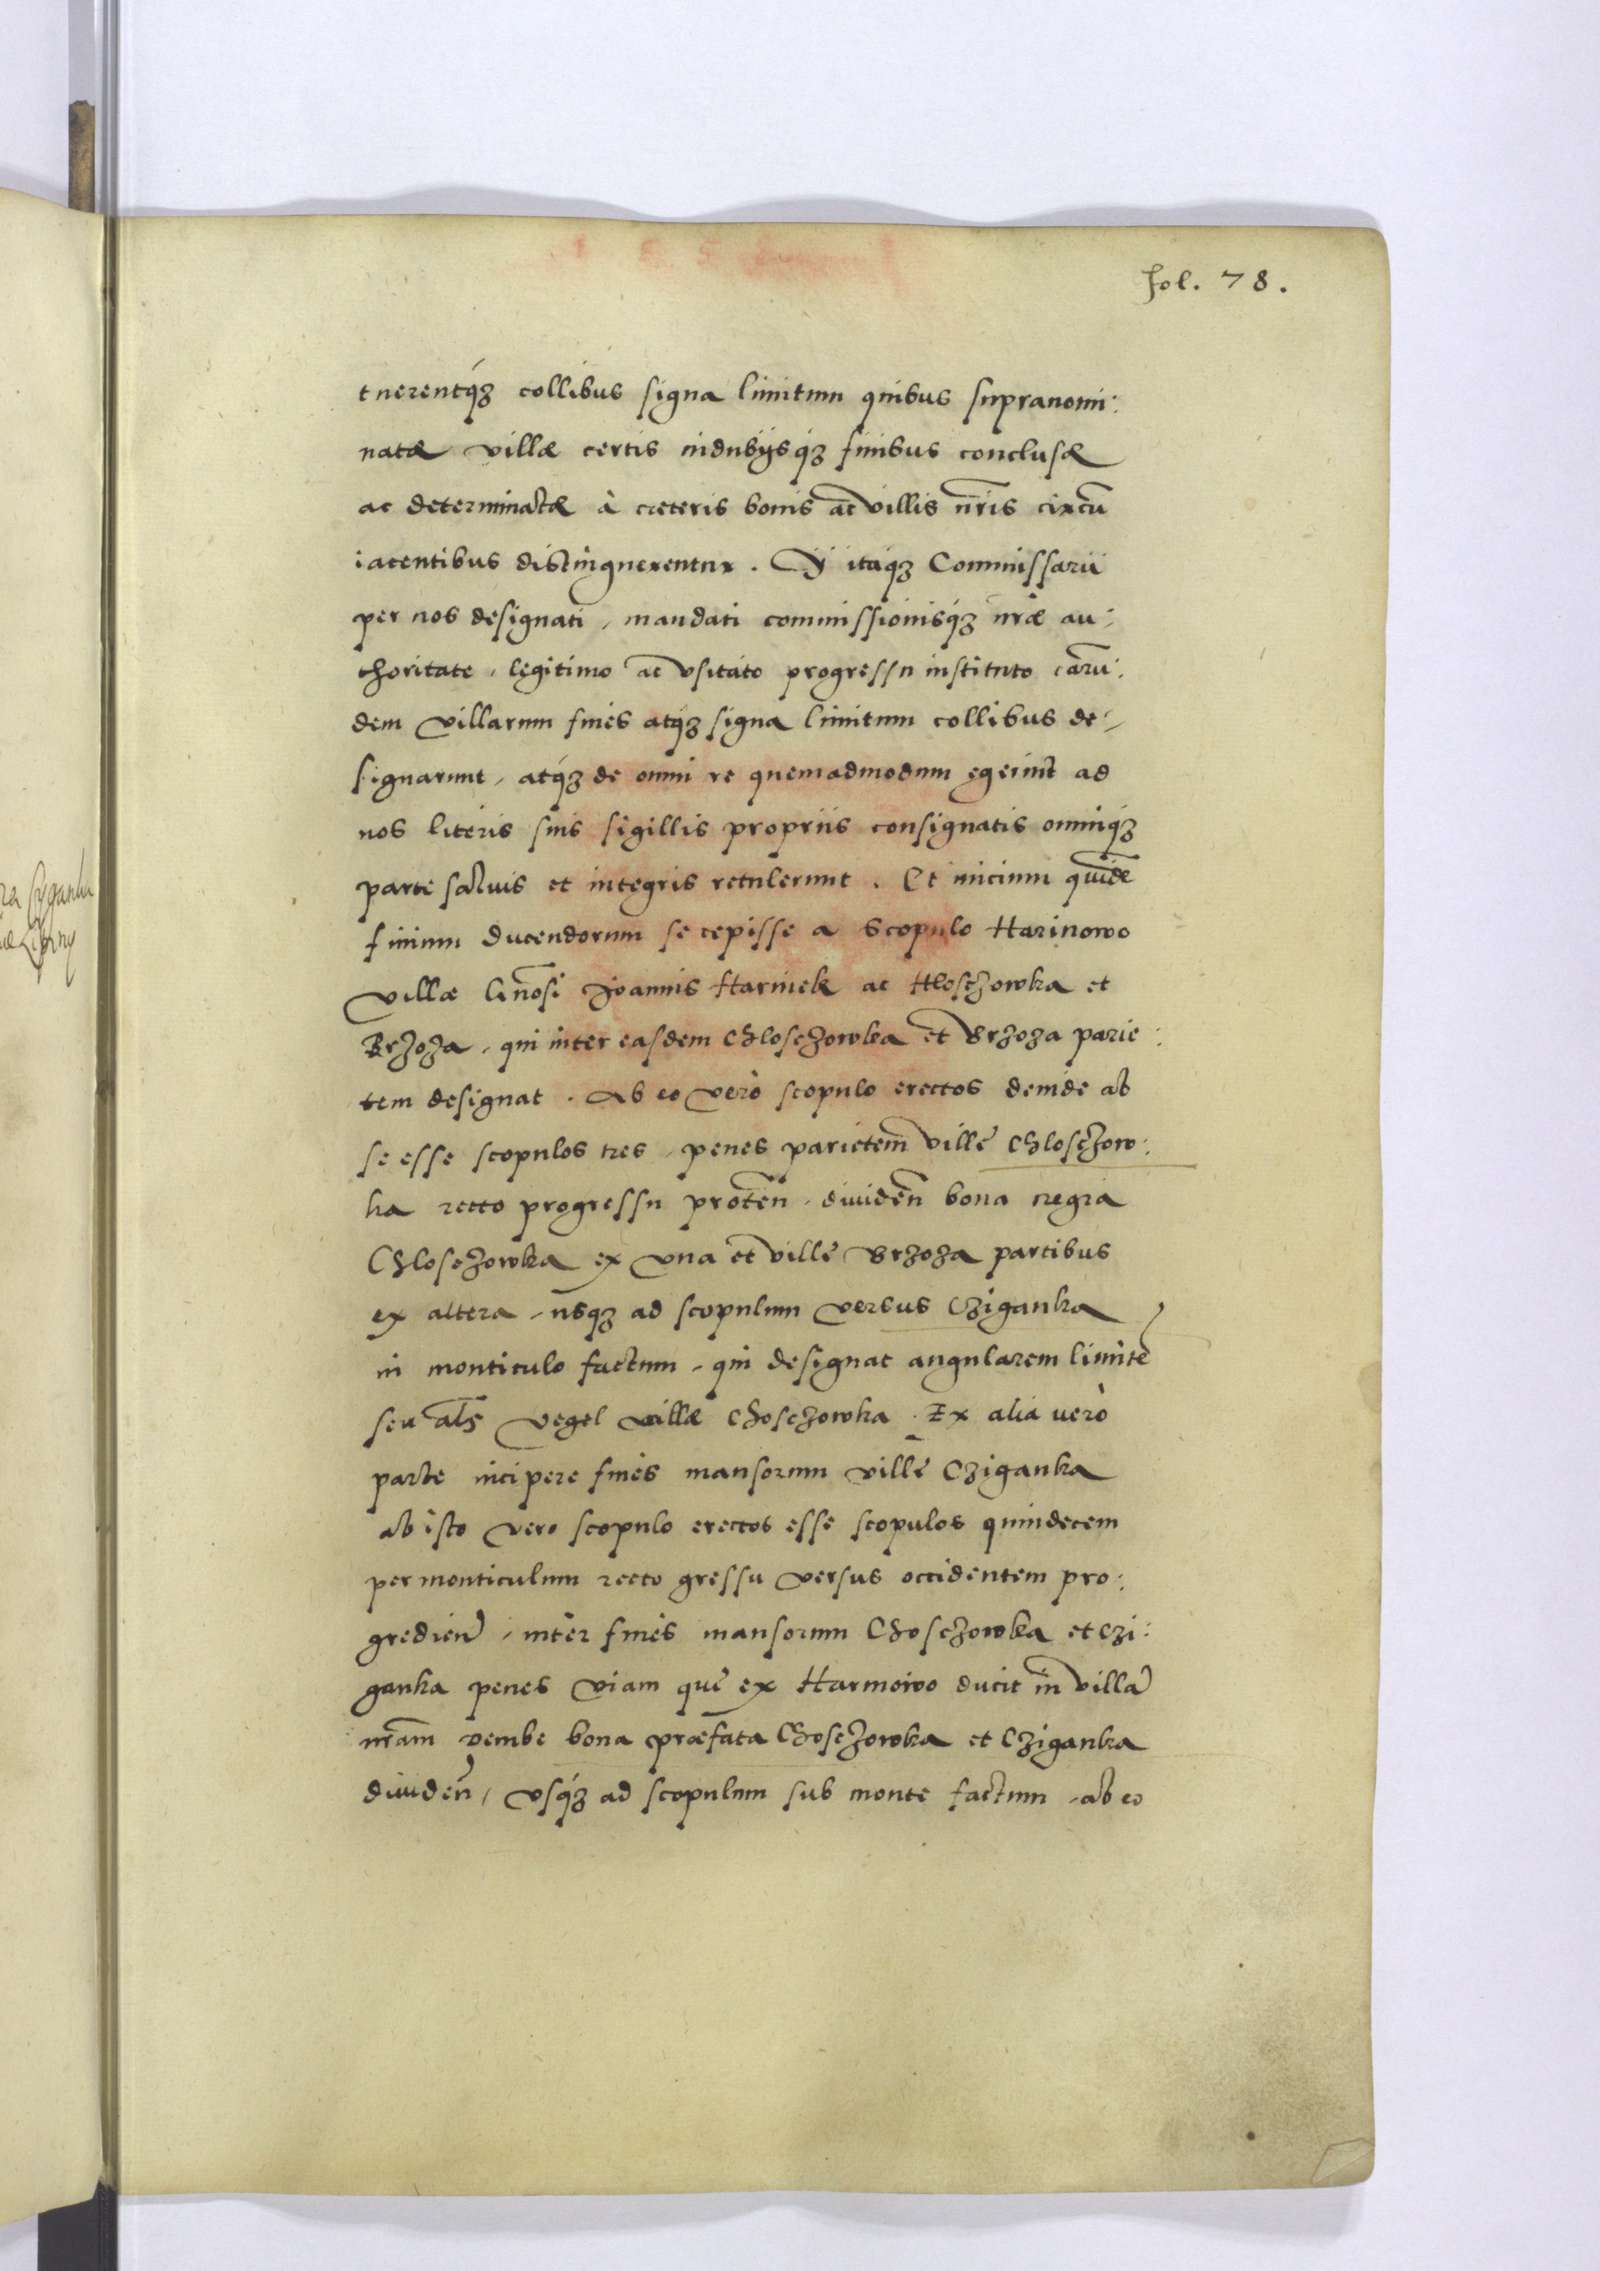 fol. 78.
tuerentq́ꝫ collibus signa limitum quibus supranomi:
natæ villæ certis indubijsq́ꝫ finibus conclusæ
ac determinatæ à cæteris bonis ac villis nr̃is circũ
iacentibus distinguerentur. Ij itaqꝫ Commissarii
per nos designati, mandati commissionisq́ꝫ nr̃æ au:
thoritate, legitimo ac vsitato progressu instituto earũ:
dem villarum fines atq́ꝫ signa limitum collibus de-
signarunt, atq́ꝫ de omni re quemadmodum egerint ad
nos literis suis sigillis propriis consignatis omniq́ꝫ
parte saluis et integris retulerunt. Et inicium quidẽ
finium ducendorum se cepisse a scopulo Harinowo
villæ Gñosi Joannis Harinek ac Hłosczowka et
Brzoza, qui inter easdem Chlosczowka et Brzoza parie:
tem designat. Ab eo verò scopulo erectos deinde ab
se esse scopulos tres, penes parietem villę Chlosczow:
ka recto progressu proteñ, diuideñ bona regia
Chlosczowka ex vna et villę Brzoza partibus
ex altera, usqꝫ ad scopulum versus Cziganka
in monticulo factum, qui designat angularem limitẽ
seu als̃ vegel villæ Chosczowka. Ex alia uerò
parte incipere fines mansorum villę Cziganka
ab isto vero scopulo erectos esse scopulos quindecem
per monticulum recto gressu versus occidentem pro:
gredieñ, inter fines mansorum Chosczowka et Czi:
ganka penes viam que ex Harmowo ducit in villã
nr̃am Dembe bona præfata Chosczowka et Cziganka
diuideñ, vsq́ꝫ ad scopulum sub monte factum, ab eo